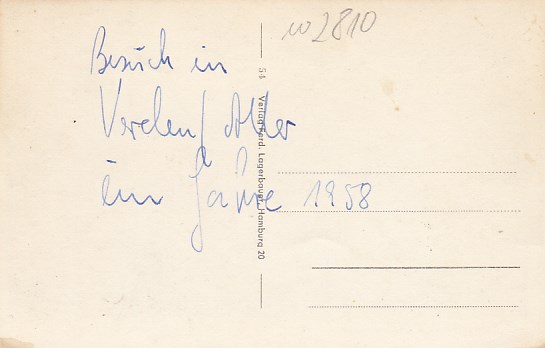 w2810
Besuch in
Verden/Aller
im Jahre 1958
54 Verlag Ferd. Lagerbauer, Hamburg 20